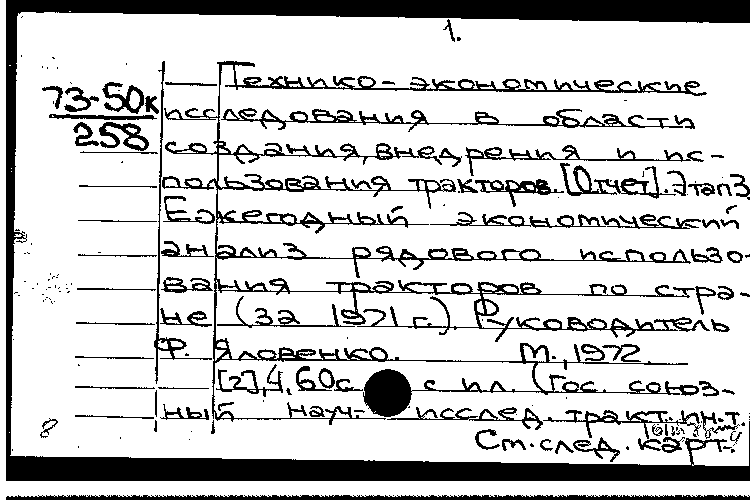 1.
Технико-экономические
73-50к
258
исследования в области
создания, внедрения и ис-
пользования тракторов. [Отчет]. Этап 3
Ежегодный экономический
анализ рядового использо-
вания тракторов по стра-
не (за 1971 г.). Руководитель
Ф. Яловенко. М., 1972.
[2], 4, 60 с с ил. (Гос. союз-
ный науч.- исслед. тракт. ин.т
8
См. след. карт.